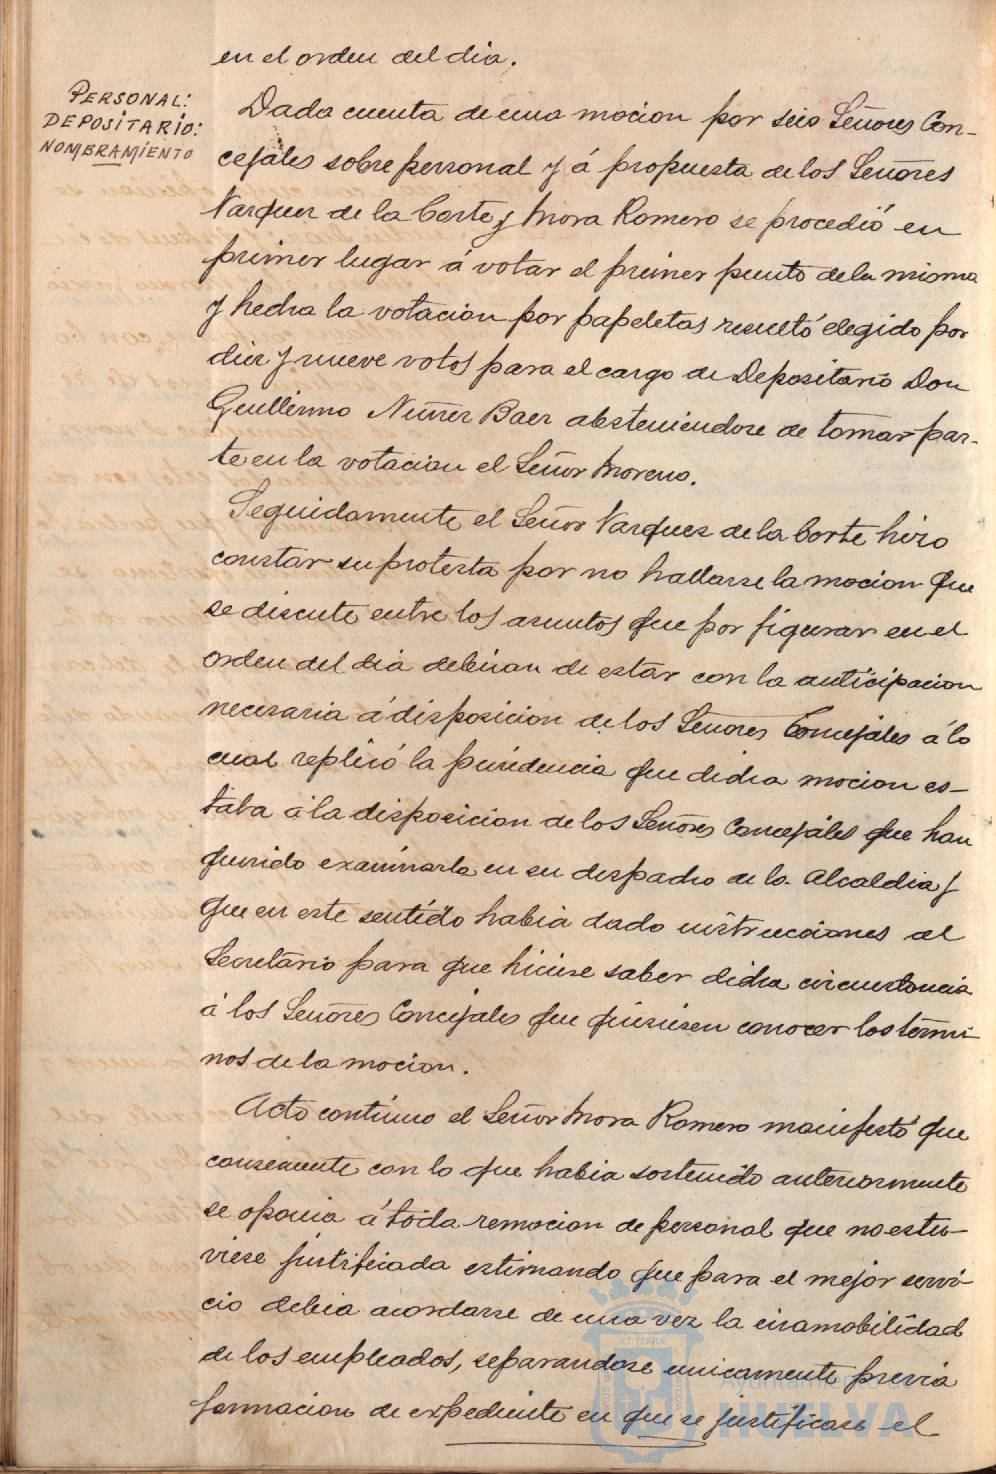 en el orden del dia.
PERSONAL:
DEPOSITARIO:
NOMBRAMIENTO
Dada cuenta de una mocion por seis Señores Con-
cejales sobre personal y á propuesta de los Señores
Vazquez de la Corte y Mora Romero se procedió en
primer lugar á votar el primer punto de la misma
y hecha la votacion por papeletas resultó elegido por
diez y nueve votos para el cargo de Depositario Don
Guillermo Nuñez Baez absteniendose de tomar par-
te en la votacion el Señor Moreno.
Seguidamente el Señor Vazquez de la Corte hizo
constar su protesta por no hallarse la mocion que
se discute entre los asuntos que por figurar en el
orden del dia debieran de estar con la anticipacion
necesaria á disposicion de los Señores Concejales á lo
cual replicó la presidencia que dicha mocion es-
taba á la disposicion de los Señores Concejales que han
querido examinarla en su despacho de la Alcaldia y
que en este sentido habia dado instrucciones al
Secretario para que hiciese saber dicha circunstancia
á los Señores Concejales que quisiesen conocer los termi-
nos de la mocion.
Acto continuo el Señor Mora Romero manifestó que
consecuente con lo que habia sostenido anteriormente
se oponia á toda remocion de personal que no estu-
viese justificada estimando que para el mejor servi-
cio debia acordarse de una vez la inamobilidad
de los empleados, separandose unicamente previa
formacion de expediente en que se justificase el
Ayuntamiento
HUELVA